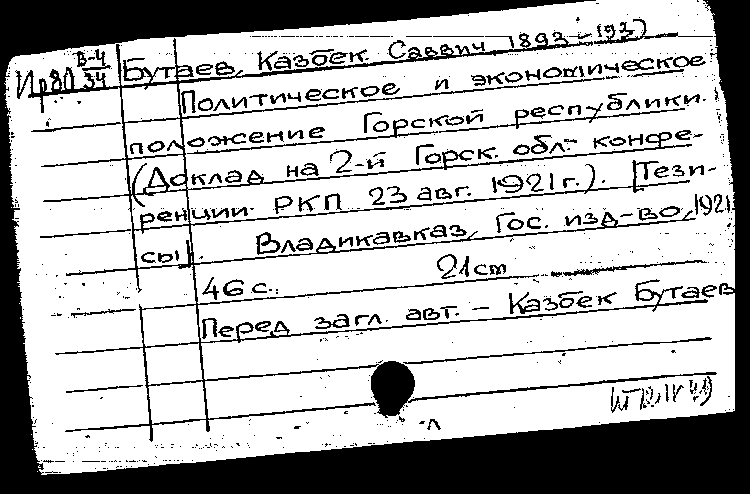 В-4
Ир80 34
Бутаев, Казбек Саввич 1893 - 193)
Политическое и экономическое
положение Горской республики.
(Доклад на 2-й Горск. обл. конфе-
ренции РКП 23 авг. 1921 г.). [Тези-
сы]. Владикавказ, Гос. изд-во, 1921
46 с. 21 cm
Перед загл. авт. - Казбек Бутаев